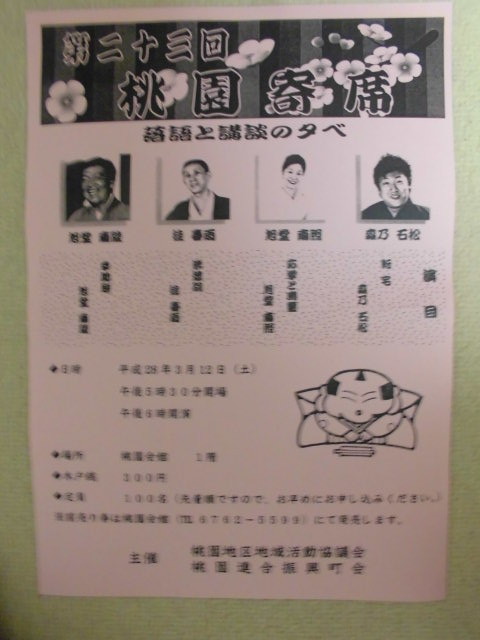 第二十三回
桃園寄席
落語と講談の夕べ
旭堂 南
桂 春
旭堂 南照
森乃 石松
演目
森乃 石松
旭堂 南照
桂 春
旭堂 南
◆日時 平成28年3月12日（土）
午後5時30分開場
午後6時開演
◆場所 桃園会館 1階
◆木戸銭 300円
◆定員 100名（先着順ですので、お早めにお申し込みください。）
前売り券は桃園会館（℡ 6762-5599）にて発売します。
主催 桃園地区地域活動協議会
桃園連合振興町会